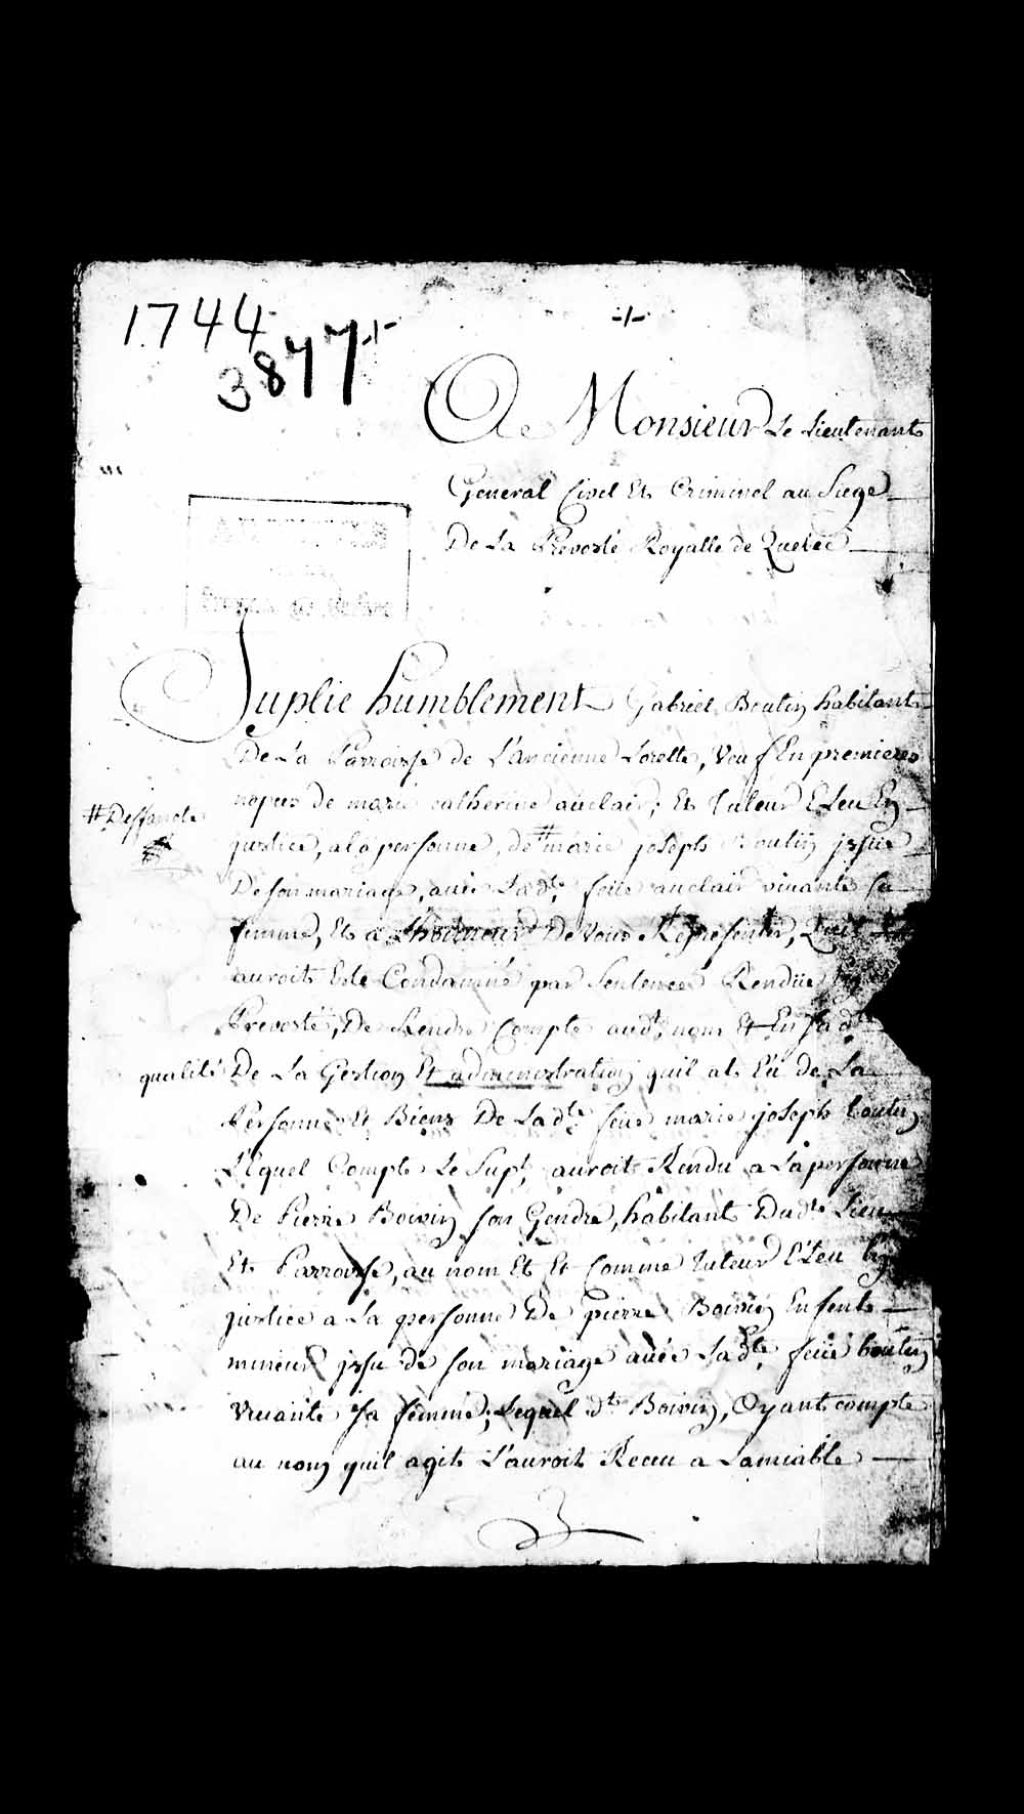 1744
3877
A Monsieur Le Lieutenant
General Civil Et Criminel au Siege
De La Prevosté Royalle de Quebec
Suplie humblement Gabriel Boutin habitant
De La Parroisse de L'ancienne Lorette, Veuf En premieres
nopces de marie catherine auclair, Et Tuteur Eleu En
# Deffuncte
justice, a la personne, de # marie joseph Boutin jssüe
De son mariage, avec Lad.te feüe auclair vivante sa
femme, Et a L'honneur De Vous Representer, Quil
auroit Esté Condamné par Sentence Rendüe
Prevosté, De Rendre Compte aud.t nom Et En sad.te
qualité De La Gestion Et administration quil at Eü de La
Personne Et Biens De Lad.te feüe marie joseph boutin
Lequel Compte Le Sup.t auroit Rendu a La personne
De Pierre Boivin son Gendre, habitant Dud.t Lieu
Et Parroisse, au nom Et Et Comme Tuteur Eleu En
justice a La personne De pierre Boivin Enfent
mineur jssu de son mariage avec Lad.te feüe boutin
vivante sa femme; Lequel d.t Boivin, Oyant compte
au nom quil agit L'auroit Receu a Lamiable